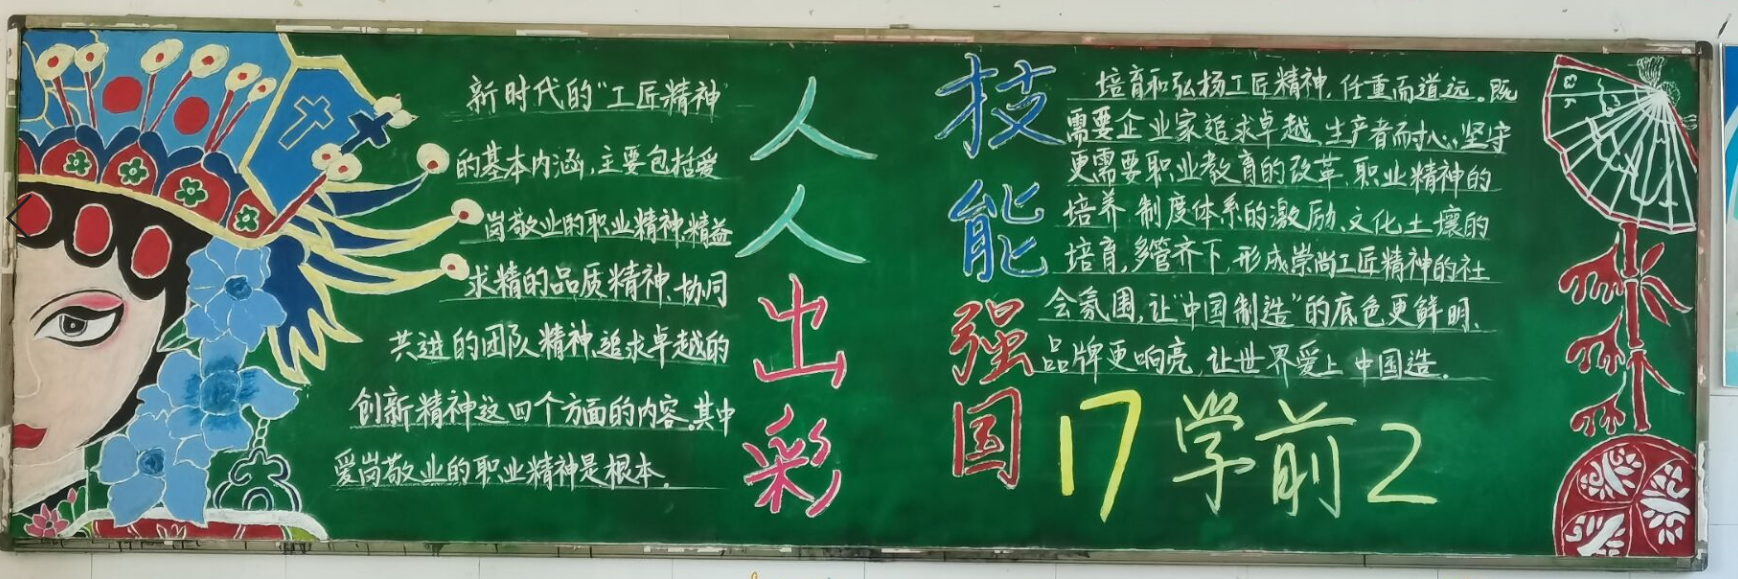 新时代的“工匠精神”
的基本内涵,主要包括爱
岗敬业的职业精神、精益
求精的品质精神、协同
共进的团队精神、追求卓越的
创新精神这四个方面的内容。其中
爱岗敬业的职业精神是根本.
人人出彩
技能强国
培育和弘扬工匠精神,任重而道远。既
需要企业家追求卓越、生产者耐心、坚守
更需要职业教育的改革、职业精神的
培养、制度体系的激励、文化土壤的
培育,多管齐下,形成崇尚工匠精神的社
会氛围,让“中国制造”的底色更鲜明、
品牌更响亮,让世界爱上中国造.
17学前2